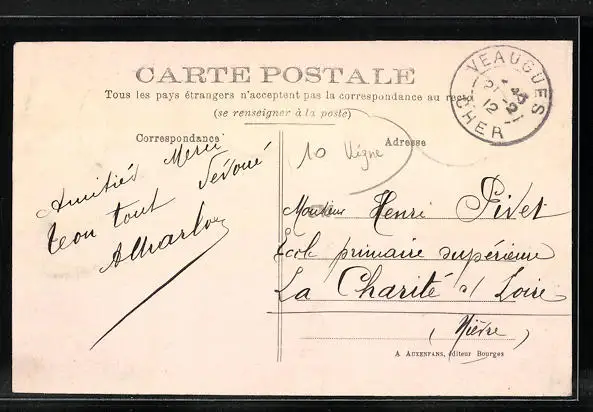 CARTE POSTALE
Tous les pays étrangers n'acceptent pas la correspondance au recto
(se renseigner à la poste)
Correspondance
Adresse
VEAUGUES
CHER
21
12
10 Vigne
Amitiés Merci
tout dévoué
Monsieur Henri Pivet
Ecole primaire supérieure
La Charité s/ Loire
(Nièvre)
A. AUXENFANS, éditeur Bourges